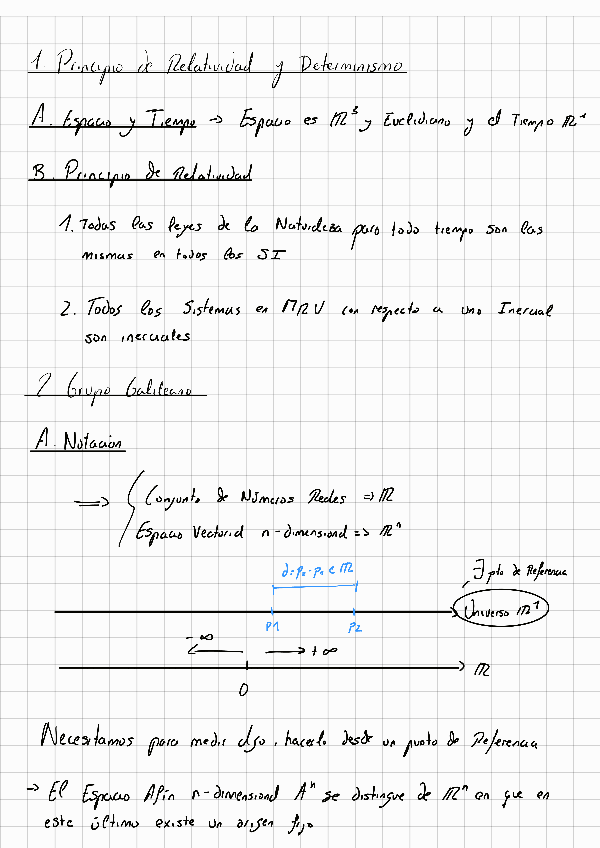 1. Principio de Relatividad y Determinismo
A. Espacio y Tiempo → Espacio es ℝ³ y Euclidiano y el Tiempo ℝ¹
B. Principio de Relatividad
1. Todas las leyes de la Naturaleza para todo tiempo son las
mismas en todos los SI
2. Todos los Sistemas en MRU con respecto a uno Inercial
son inerciales
2 Grupo Galileano
A. Notación
⟹ { Conjunto de Números Reales ⇒ ℝ
Espacio Vectorial n-dimensional => ℝⁿ
∃ pto de Referencia
d = p₂ - p₁ ∈ ℝ
Universo ℝ¹
P1 P2
-∞ +∞
ℝ
0
Necesitamos para medir algo, hacerlo desde un punto de Referencia
→ El Espacio Afín n-dimensional Aⁿ se distingue de ℝⁿ en que en
este último existe un origen fijo